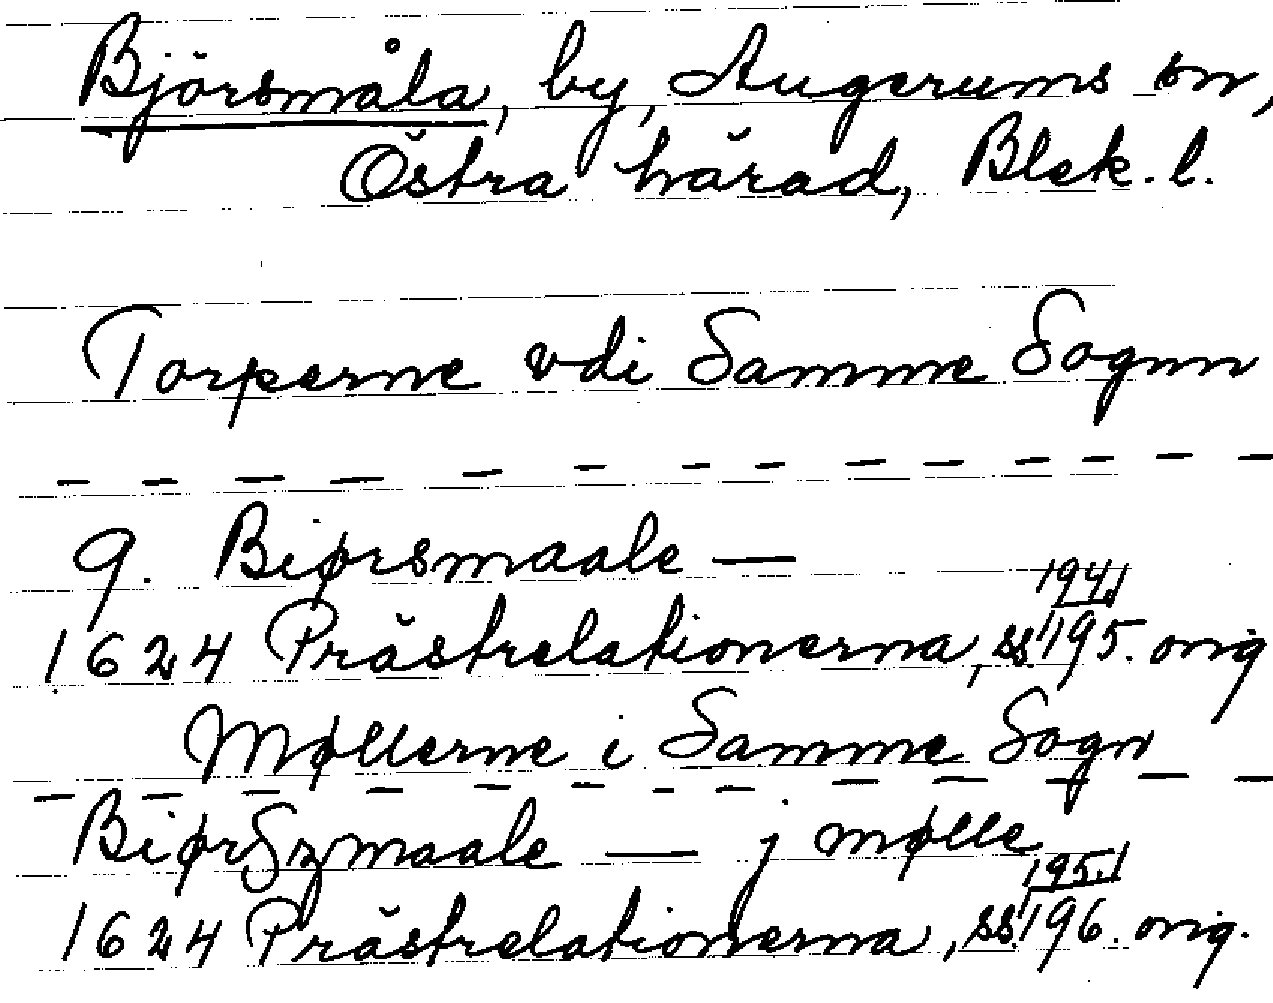 Björsmåla, by, Augerums sn,
Östra härad, Blek. l.
Torperne vdi Samme Sognn
9. Biørsmaale —
194.
1624 Prästrelationerna, ss 195. orig
Møllerne i Samme Sogn
BiørSzmaale — j mølle
195.
1624 Prästrelationerna, ss. 196. orig.